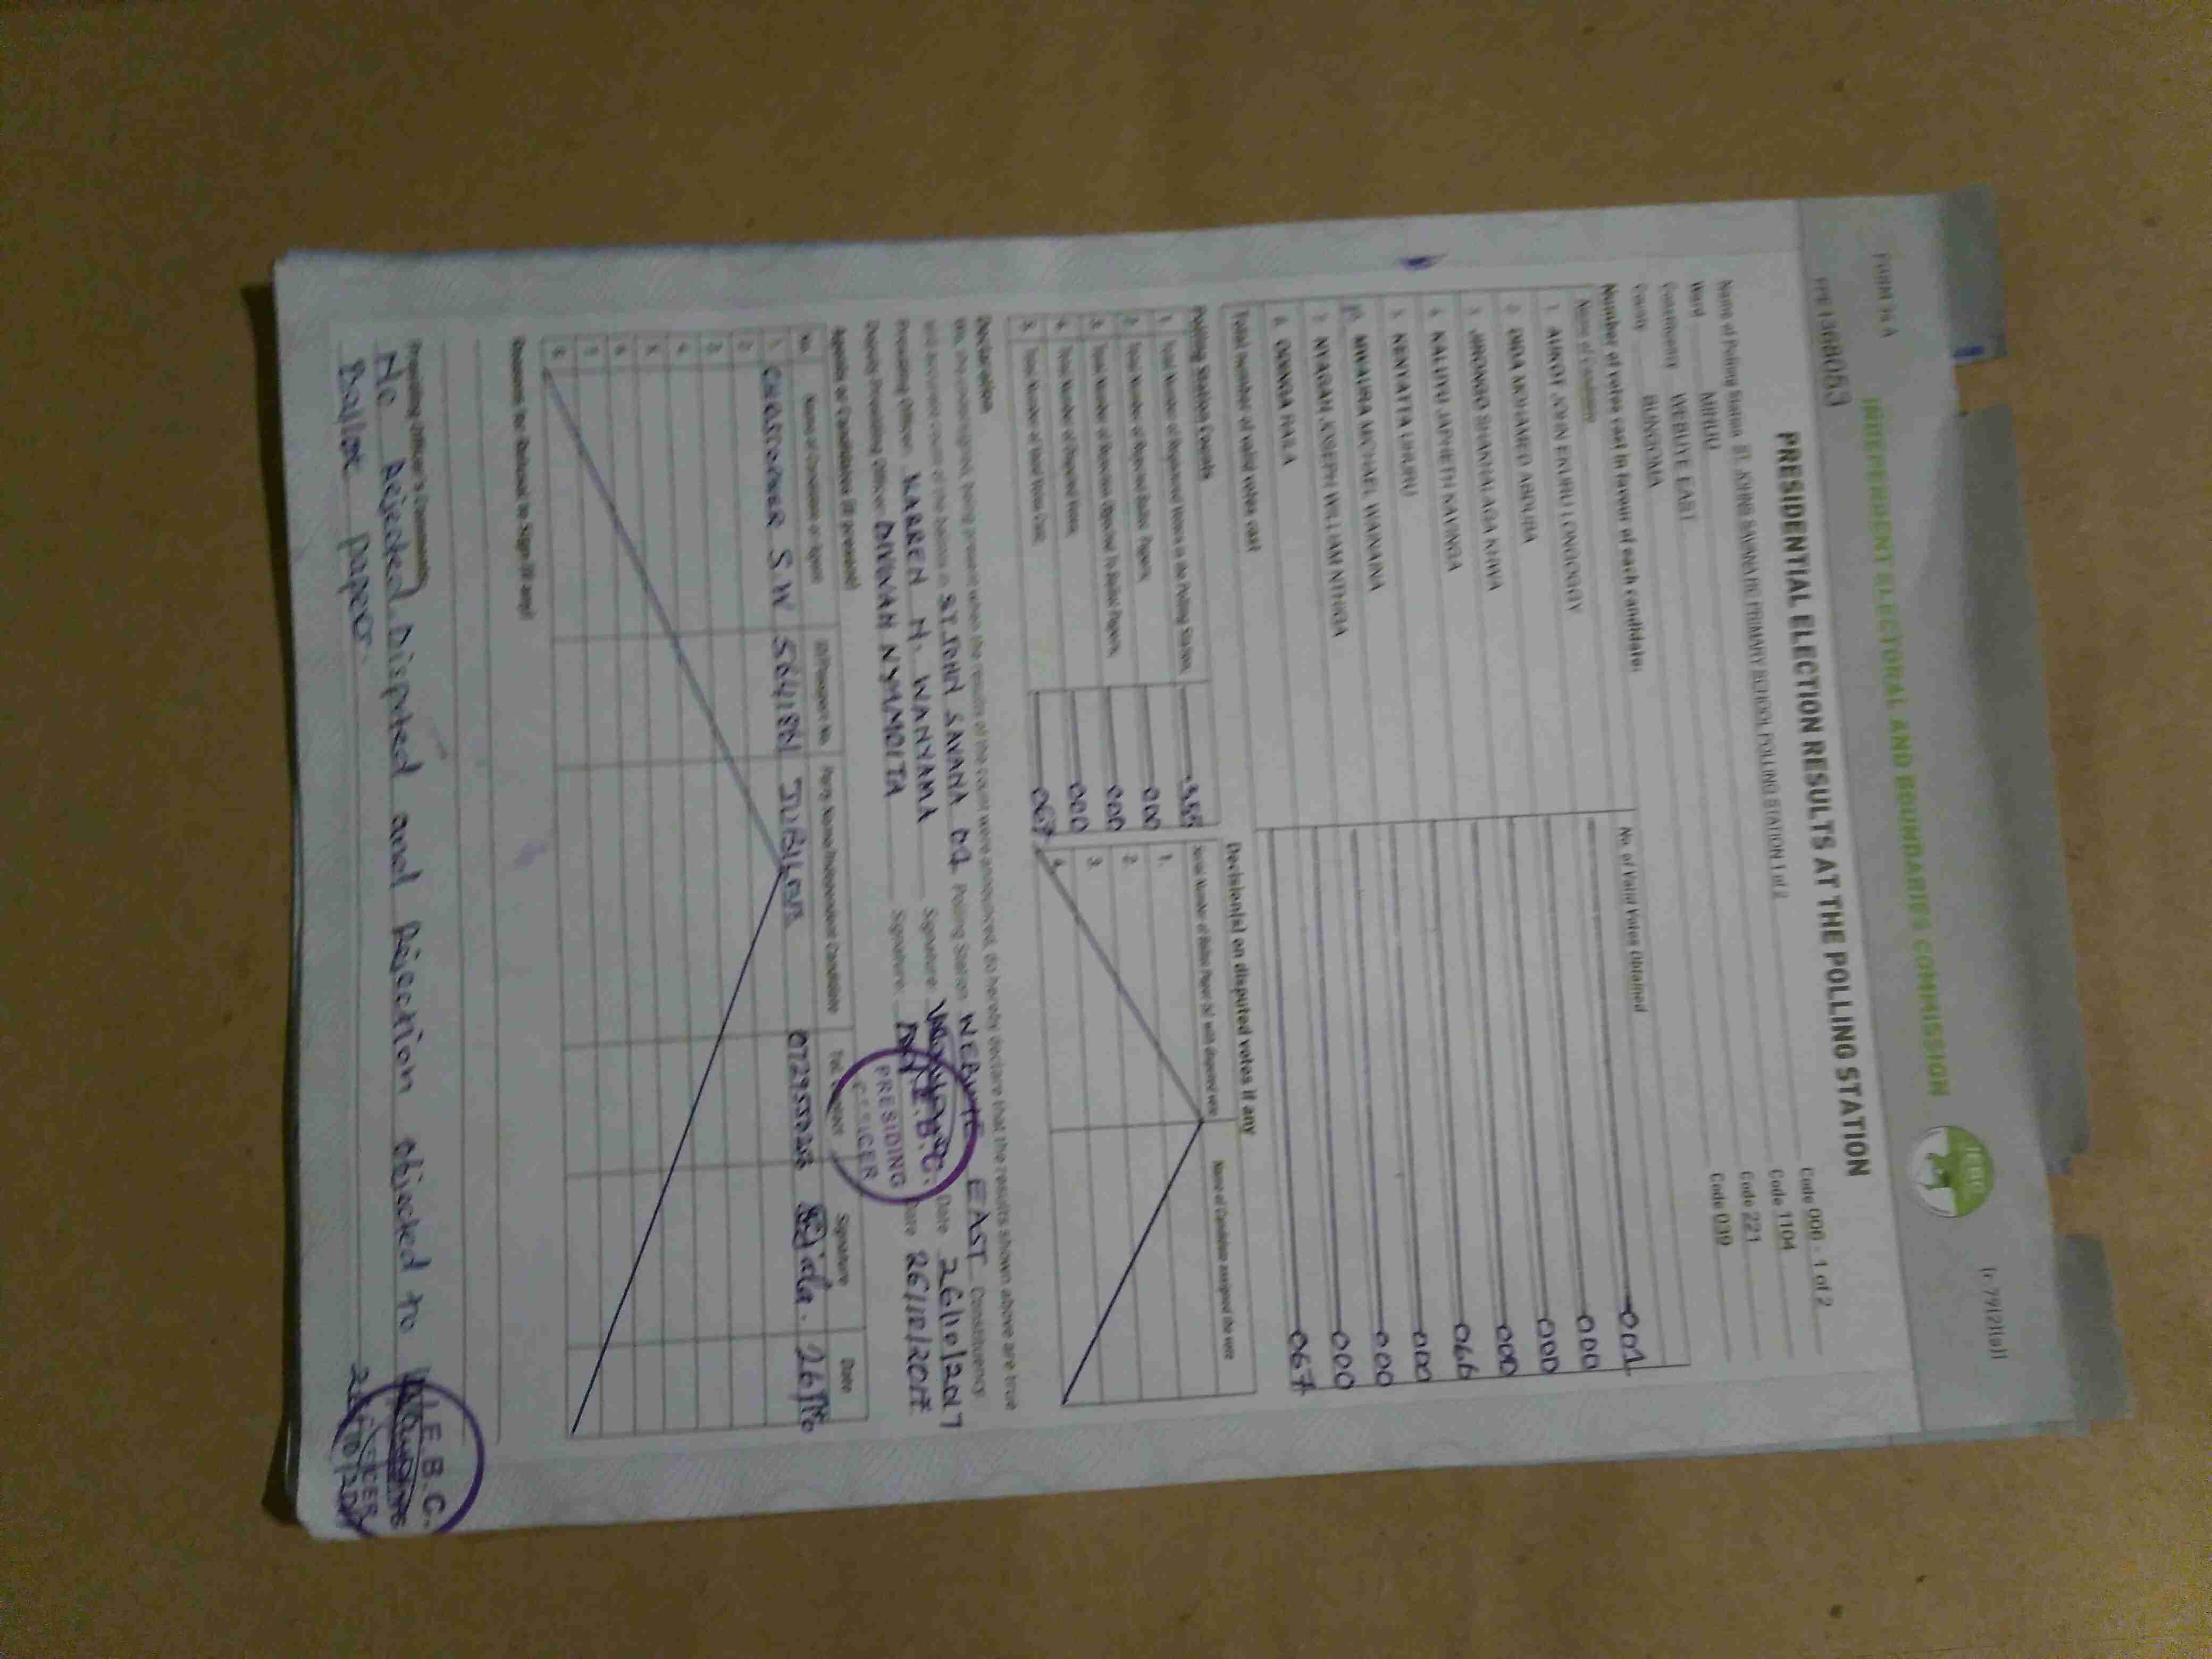 FORM 34 A
(r.79(2)(a))
INDEPENDENT ELECTORAL AND BOUNDARIES COMMISSION
IEBC
PRESIDENTIAL ELECTION RESULTS AT THE POLLING STATION
Name of Polling Station ST. JOHNS PRIMARY SCHOOL POLLING STATION 1 of 2 Code 006 - 1 of 2
Ward MIHUU Code 1104
Constituency WEBUYE EAST Code 221
County BUNGOMA Code 039
Number of votes cast in favour of each candidate:
Name of Candidate No. of Valid Votes Obtained
1. AUKOT JOHN EKURU LONGOGGY 001
2. DIDA MOHAMED ABDUBA 000
3. JIRONGO SHAKHALAGA KHWA 000
4. KALUYU JAPHETH KAVINGA 000
5. KENYATTA UHURU 066
6. MWAURA MICHAEL WAINAINA 000
7. NYAGAH JOSEPH WILLIAM NTHIGA 000
8. ODINGA RAILA 000
Total number of valid votes cast 067
Polling Station Counts
1. Total Number of Registered Voters in the Polling Station
2. Total Number of Rejected Ballot Papers 000
3. Total Number of Rejection Objected To Ballot Papers 000
4. Total Number of Disputed Votes 000
5. Total Number of Valid Votes Cast 067
Decision(s) on disputed votes if any
Serial Number of Ballot Paper (s) with disputed vote Name of Candidate assigned the vote
1.
2.
3.
4.
Declaration
We, the undersigned, being present when the results of the count were announced, do hereby declare that the results shown above are true
and accurate count of the ballots in ST. JOHN SAVANA 01 Polling Station WEBUYE EAST Constituency.
Presiding Officer: KARREN N. WANYAMA Signature: Date 26/10/2017
Deputy Presiding Officer: DIVINAH Signature: Date 26/10/2017
I.E.B.C. PRESIDING OFFICER
Agents or Candidates (if present)
No. Name of Candidate or Agent ID/Passport No. Party Name/Independent Candidate Tel. Contact Signature Date
1. S.W
2.
3.
4.
5.
6.
7.
8.
Reasons for Refusal to Sign (if any)
Presiding Officer's Comments
No Rejected, Disputed and Rejection objected to
Ballot paper.
I.E.B.C.